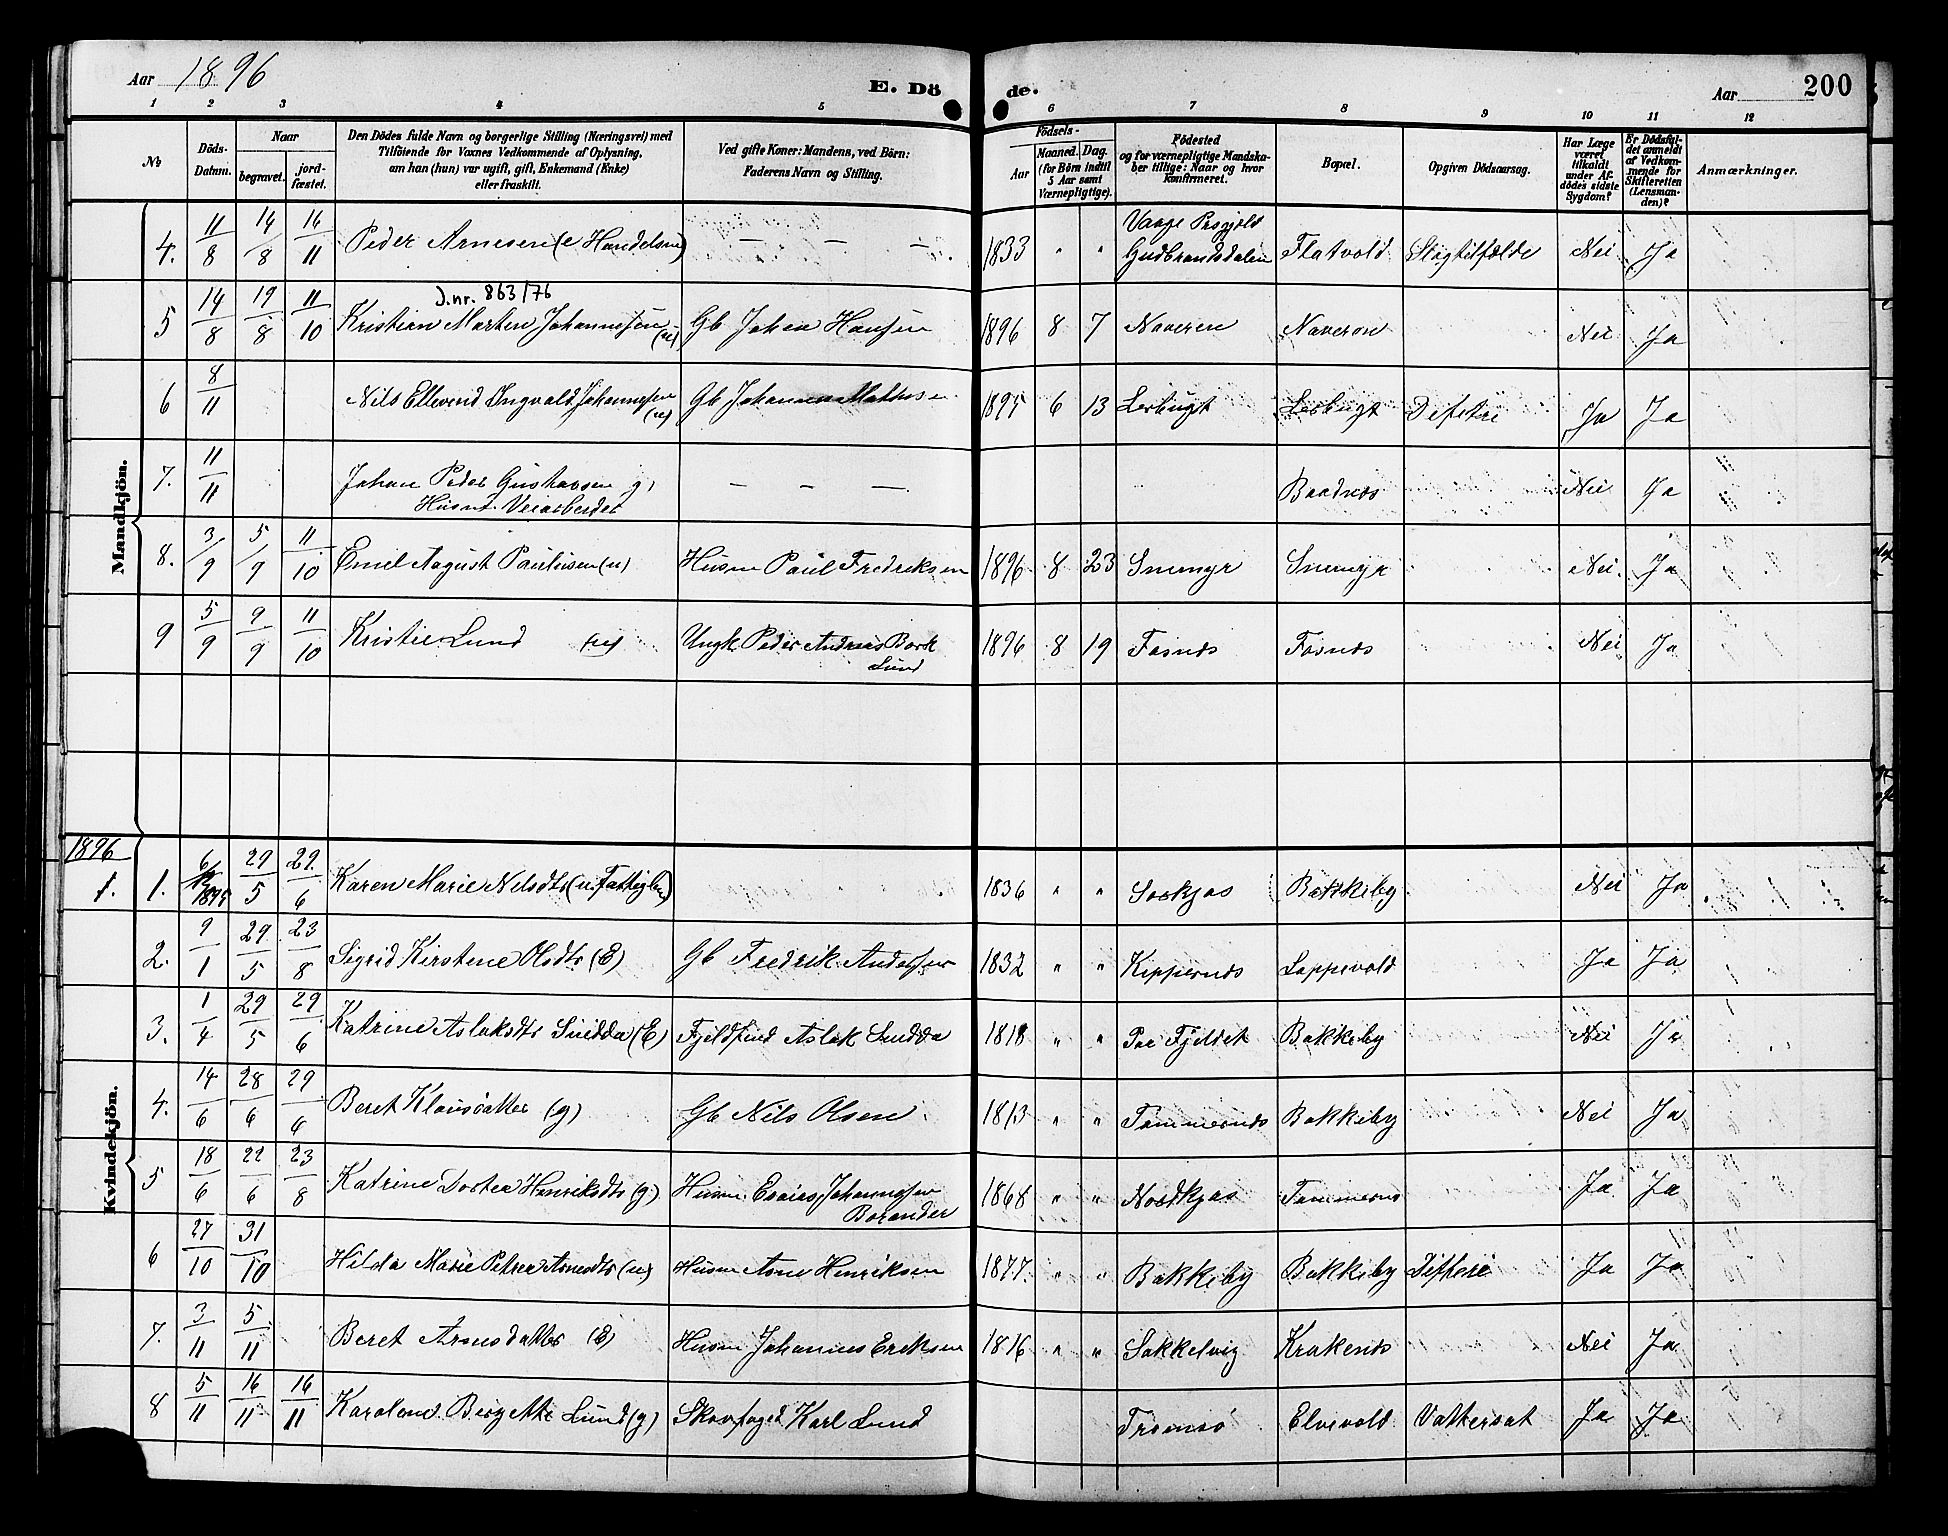 Aar 1896
E. Döde.
Aar 200
1 2 3 4 5 6 7 8 9 10 11 12
No
Döds-Datum.
Naar
begravet.
jord-fæstet.
Den Dödes fulde Navn og borgerlige Stilling (Næringsvei) med
Tilföiende for Voxnes Vedkommende af Oplysning,
om han (hun) var ugift, gift, Enkemand (Enke)
eller fraskilt.
Ved gifte Koner: Mandens, ved Börn:
Faderens Navn og Stilling.
Födsels-
Aar
Maaned. Dag.
(for Börn indtil
5 Aar samt
Værnepligtige).
Födested
og for værnepligtige Mandska-
ber tillige: Naar og hvor
konfirmeret.
Bopæl.
Opgiven Dödsaarsag.
Har Læge
været
tilkaldt
under Af-
dödes sidste
Sygdom?
Er Dödsfal-
det anmeldt
af Vedkom-
mende for
Skifteretten
(Lensman-
den)?
Anmærkninger.
Mandkjön.
4. 11/8 14/8 16/11 Peder Arnesen (e Handelsm) — — — 1833 " " Vaage Prsgjeld Gudbrandsdalen Flatvold Slagtilfælde Nei Ja
J.nr. 863/76
5 14/8 19/8 11/10 Kristian Morten Johannessen (u) Gb Johan Hansen 1896 8 7 Naveren Naveren Nei Ja
6 8/11 Nils Ellevend Ingvald Johannessen (u) Gb Johannes Mathisen 1895 6 13 Lerbugt Lerbugt Difteri Ja Ja
7. 11/11 Johan Peder Gustavsen g, — — — Baadnes Nei Ja
Husm. Veiarbeider
8. 3/9 5/9 11/10 Emil August Paulusen (u) Husm Paul Fredriksen 1896 8 23 Snemyr Snemyr Nei. Ja
9 5/9 9/9 11/10 Kristie Lund (u) Ungk. Peder Andreas Bork 1896 8 19 Fasnes Fasnes Nei Ja
Lund
1896
Kvindekjön.
1. 1. 6/12 1895 29/5 29/6 Karen Marie Nilsdtr (u. Fattiglem) 1836 " " Sørkjos Bakkeby Nei Ja
2. 9/1 29/5 23/8 Sigrid Kirstine Olsdtr (E) Gb Fredrik Anderssen 1832 " " Kippernes Lappevold Ja Ja
3. 1/4 29/5 29/6 Katrine Aslaksdtr Suidda (E) Fjeldfind Aslak Suidda 1818 " " Paa Fjeldet Bakkeby Nei Ja
4. 14/6 28/6 29/6 Beret Klausdatter (g) Gb Nils Olsen 1813 " " Tømmernes Bakkeby Nei Ja
5 18/6 22/6 23/8 Katrine Dortea Henriksdtr (g.) Husm. Esaias Johannessen 1868 " " Nordkjos Tømmernes Ja Ja
Borander
6 27/10 31/10 Hilda Marie Petrea Arnesdtr (u) Husm Arne Henriksen 1877. " " Bakkeby Bakkeby Difteri Ja Ja
7. 3/11 5/11 Beret Arnesdatter (E) Husm Johannes Eriksen 1816 " " Sokkelvig Krakenes Nei Ja
8 5/11 16/11 16/11 Karolene Bergette Lund (g) Skovfoged Karl Lund Tromsø Elvevold Vattersot Ja Ja